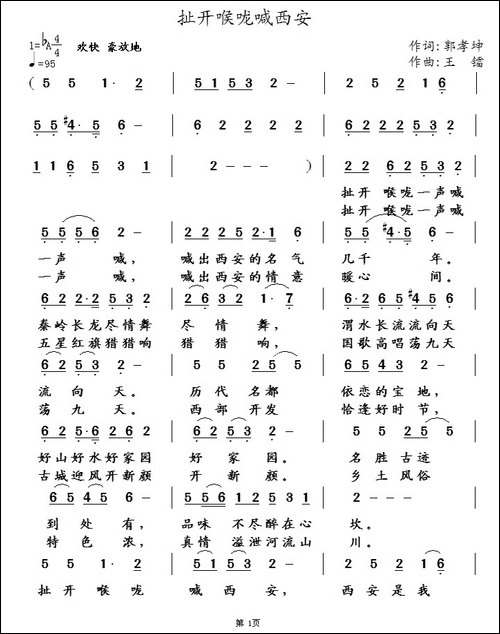 扯开喉咙喊西安
1=♭A 4/4 欢快 豪放地 作词:郭孝坤
♩=95 作曲:王 镭
( 5 5 1· 2 | 5 1 5 3 2 - | 2 5 2 1 |
5 5 #4· 5 6 - | 6 2 2 2 | 6 2 2 2 5 3 2 |
1 1 6 5 3 1 | 2 - - - ) | 2 2 6 2 5 3 2 |
扯开 喉咙一声喊
扯开 喉咙一声喊
5 5 5 6 2 - | 2 2 2 5 2·1 6 | 5 5 #4·5 6 - |
一声 喊, 喊出西安的名气 几千 年。
一声 喊, 喊出西安的情意 暖心 间。
6 2·2 5 3 2 | 2 6 3 2 1·7 | 2·6 2 6 5 #4 5 |
秦岭长龙尽情舞 尽情 舞, 渭水长流流向天
五星红旗猎猎响 猎猎 响, 国歌高唱荡九天
6 2 1 2 - | 5 5 2 5 5 | 1 2 1 6 2 - |
流向 天。 历代名都 依恋的宝地,
荡九 天。 西部开发 恰逢好时节,
6 2 5·6 2 6 2 | 5 3 5 3 2 - | 5 5 2 5 5 |
好山好水好家园 好家 园。 名胜古迹
古城迎风开新颜 开新 颜。 乡土风俗
6 5 4 5 6 - | 5 5 6 1 2 5 3 1 | 2 - - - |
到处 有, 品味 不尽醉在心 坎。
特色 浓, 真情 溢泄河流山 川。
5 5 1· 2 | 5 1 5 3 2 - | 2 5 2 1 |
扯开喉咙 喊西 安, 西安是我
第 1页